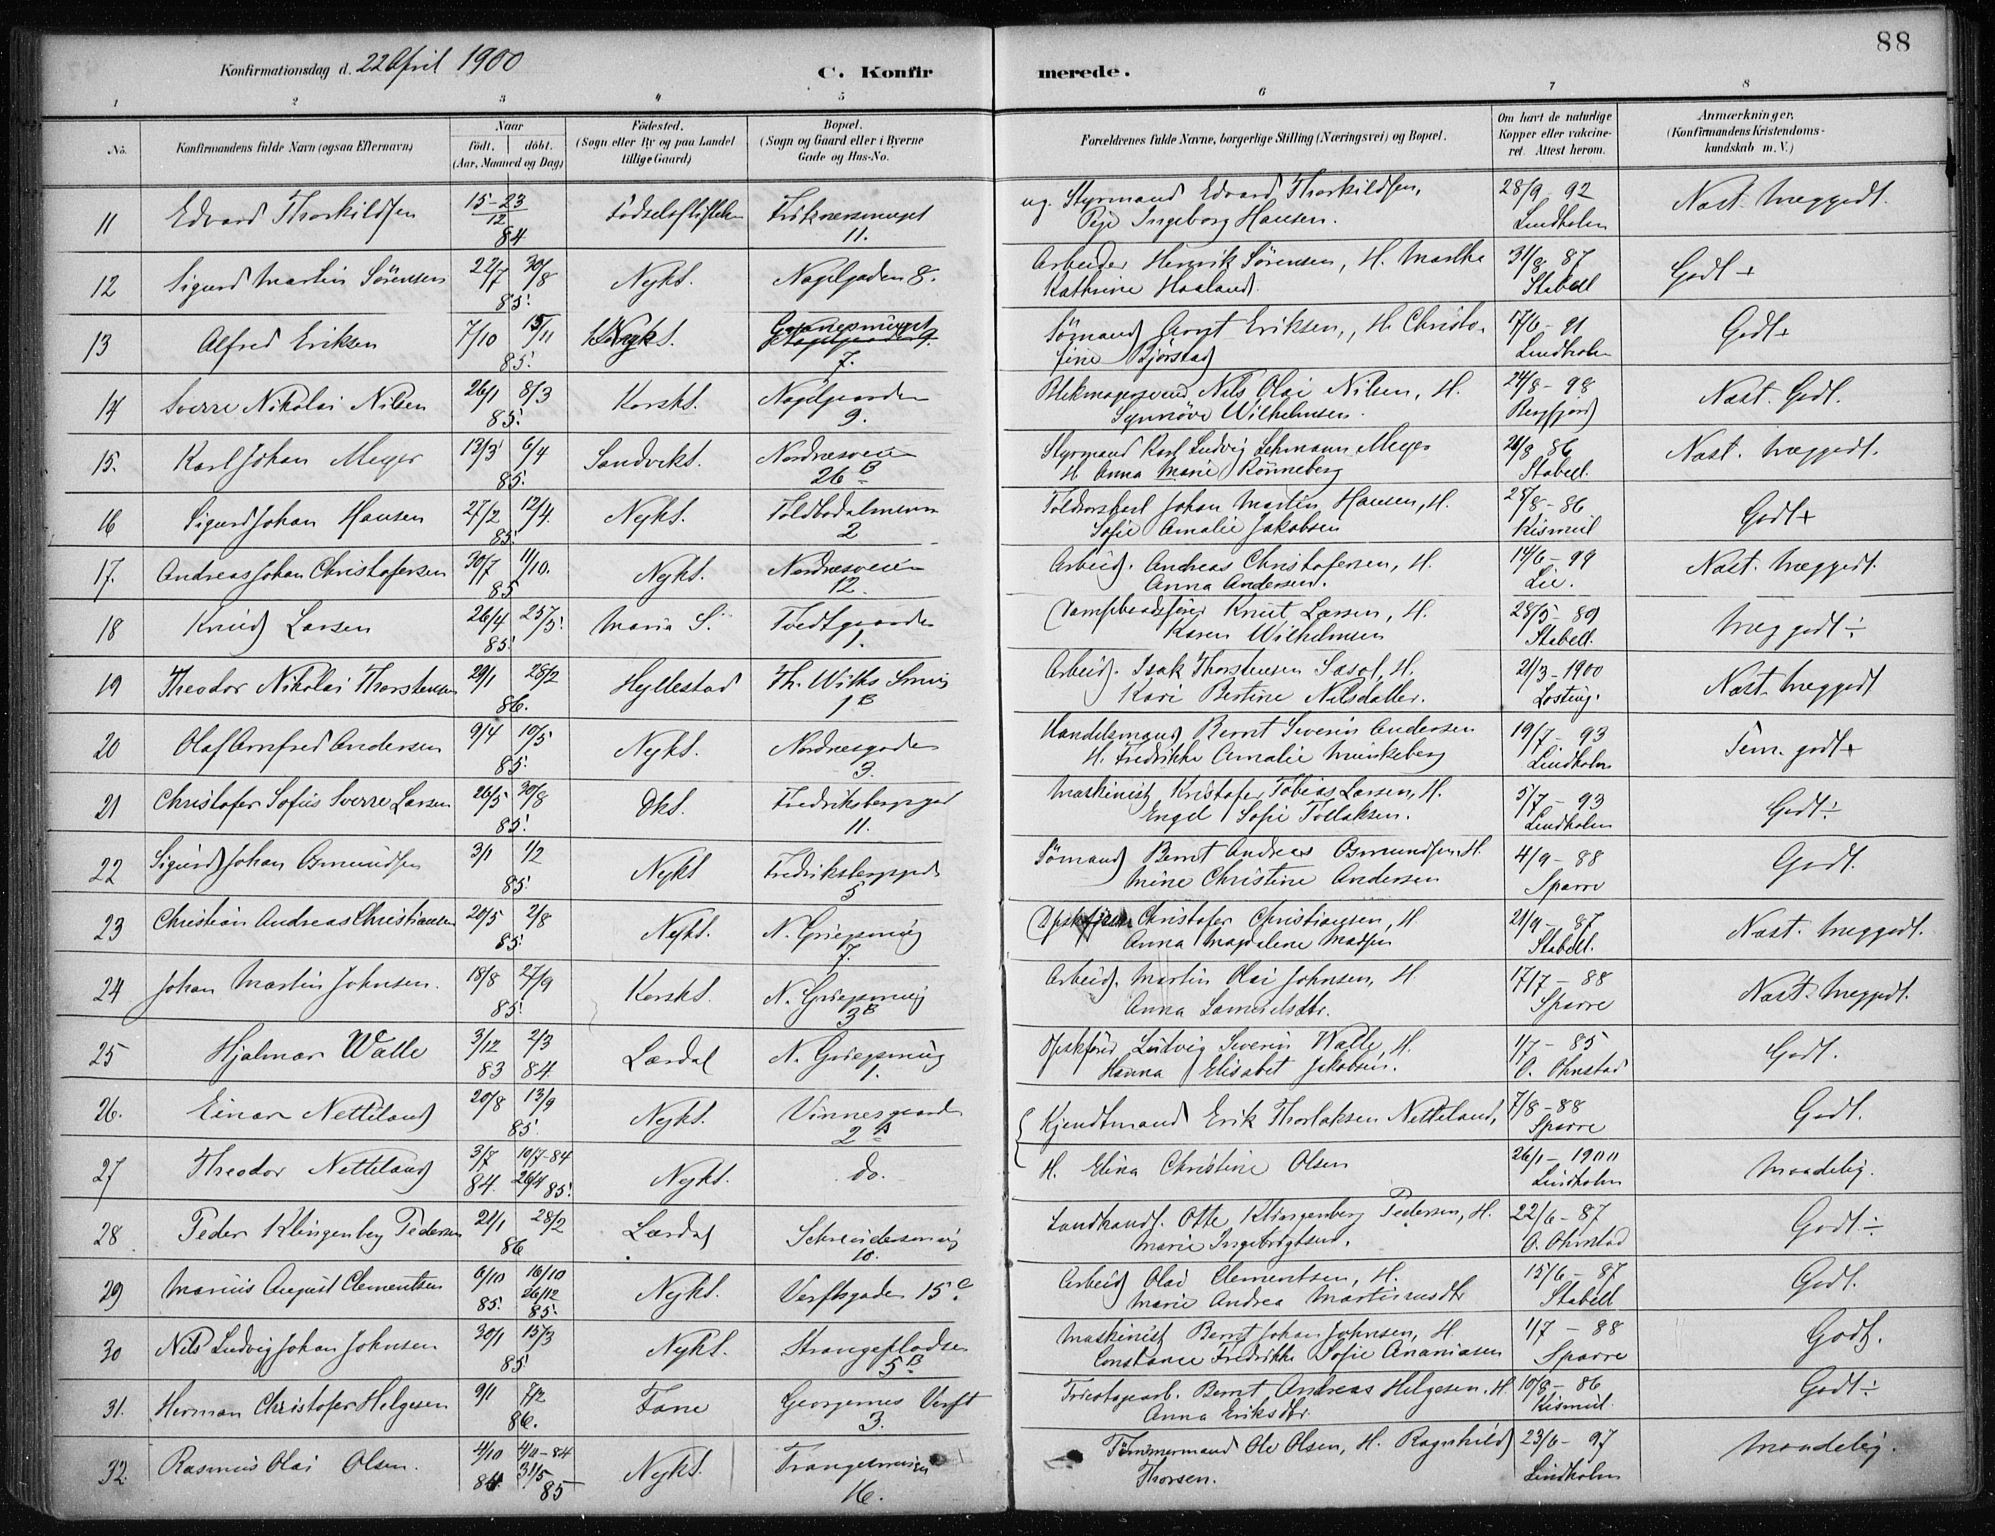 88
Konfirmationsdag d. 22 April 1900
C. Konfirmerede.
1 2 3 4 5 6 7 8
No. Konfirmandens fulde Navn (ogsaa Efternavn) Naar født. døbt. (Aar, Maaned og Dag) Fødested. (Sogn eller By og paa Landet tillige Gaard) Bopæl. (Sogn og Gaard eller i Byerne Gade og Hus-No. Forældrenes fulde Navne, borgerlige Stilling (Næringsvei) og Bopæl. Om havt de naturlige Kopper eller vakcineret. Attest herom. Anmærkninger. (Konfirmandens Kristendomskundskab m. V.)
11 Edvard Thorkildsen 15-23/12 84 Fødselsstiftelsen 11. ug. Styrmand Edvard Thorkildsen, Pige Ingeborg Hansen. 28/9-92 Lindholm Næst. Meggodt.
12 Sigurd Martin Sørensen 22/7 30/8 85. Nykt. Nøstegaden 8. Arbeider Henrik Sørensen, H. Martha Kathrine Haaland. 31/8 87 Stabell Godt +
13 Alfred Eriksen 7/10 15/11 85. Nykt. 7. Sømand Arnt Eriksen, H. Christofine Bjørstad 17/6-91 Lindholm Godt +
14 Sverre Nikolai Nilsen 26/1 8/3 85. Korskt. 9. Blikmagersvend Nils Olai Nilsen, H. Synnøve Wilhelmsen. 24/8-98 Næst. Godt.
15. Karl Johan Meyer 12/3 6/4 85. Sandvikt. Nordnesveien 26 B Styrmand Karl Ludvig Lehmann Meyer H. Anna Marie Rönneberg 86 Stabell. Næst. Meggodt.
16 Sigurd Johan Hansen 27/2 12/4. 85. Nykt. Toldbodalmenn 2 Johan Martin Hansen, H. Sofie Amalie Jakobsen 86 Godt +
17. Andreas Johan Christofersen 30/7 11/10. 85 Nykt. Nordnesveien 12. Arbeid. Andreas Christofersen, H. Anna Andersen. 14/6-99 Lie. Næst. Meggodt.
18 Knud Larsen 26/4 25/5. 85. Maria S. Tvedtgaarden 1. Knut Larsen, H. Karen Wilhelmsen 28/5-89 Stabell. Meg godt ÷
19 Theodor Nikolai Thorstensen 29/1 28/2 86. Hyllestad Th. Withs Smug 1 B Arbeid. Isak Thorstensen, H. Kari Bertine Nilsdatter. 21/3-1900 Næst. Meggodt
20 Olaf Arnfred Andersen 9/4 10/5 85. Nykt. Nordnesgaden 3. Handelsmand Bernt Severin Andersen H. Fredrikke Amalie Munkeberg 19/7-93 Lindholm Tem. godt +
21 Christofer Sofus Sverre Larsen 26/5 30/8 85. Dkt. Fredriksbergsgd 11. Maskinist Kristofer Tobias Larsen, H. Engel Sofie Tollaksen. 5/7-93 Lindholm Godt ÷
22 Sigurd Johan Osmundsen 3/1 1/2 85. Nykt Fredriksbergsgd 5 Sømand Bernt Andreas Osmundsen, H. Mine Christine Andersen 4/9-88 Sparre Godt.
23 Christian Andreas Christiansen 20/5 2/8 85. Nykt. N. Griegsmug 7. Christofer Christiansen, H. Anna Magdalene Madsen 21/9-87 Stabell. Næst. Meggodt.
24 Johan Martin Johnsen. 18/8 27/9 85. Korskt. N. Griegsmug 3 B Arbeid. Martin Olai Johnsen, H. Anna Samuelsdtr. 17/7-88 Sparre Næst. Meggodt.
25 Hjalmar Walle 3/12 83 2/3 84. Lærdal N. Griegsmug 1. Opskfører Ludvig Severin Walle, H. Hanna Elisabet Jakobsen. 1/7-85 O. Ohnstad Godt.
26. Einar Netteland 20/8 13/9 85. Nykt. Vinnesgaarden 2 A Kjendtmand Erik Thorlaksen Netteland, 7/8-88 Sparre Godt.
27 Theodor Netteland 3/7 84. 10/7-84 26/4 85. Nykt. do. H. Elina Christine Olsen 26/1-1900 Lindholm Maadelig.
28 Peder Klingenberg Pedersen 21/1 28/2 86 Lærdal 10. Landhand. Otte Klingenberg Pedersen, H. Marie Ingebrigtsen. 22/6-87 O. Ohnstad Godt ÷
29 Marius August Clementsen 6/10 85. 16/10 26/12 85. Nykt. Verftsgaden 15 C Arbeid Olai Clementsen, H. Marie Andrea Martinusdtr 15/6-87 Stabell Godt.
30 Nils Ludvig Johan Johnsen 30/1 15/3 85 Nykt. Strangebladsen 5 B Maskinist Bernt Johan Johnsen, H. Constance Fredrikke Sofie Ananiasen 1/7-88 Sparre Godt.
31. Herman Christofer Helgesen 9/1 7/2 86. Fane Georgernes Verft 3. Bernt Andreas Helgesen, H. Anna Eriksdtr. 86 Godt ÷
32. Rasmus Olai Olsen. 4/10 84 4/11-84 31/5 85 Nykt. 16. Tømmermand Ole Olsen, H. Ragnhild Thorsen. 23/6-97 Lindholm Maadelig.